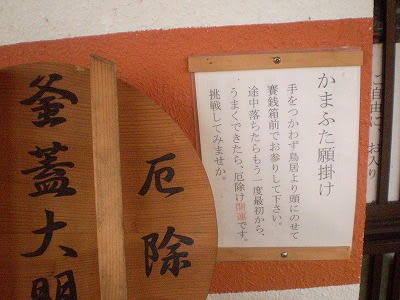 かまふた願掛け
手をつかわず鳥居より頭にのせて
賽銭箱前でお参りして下さい。
途中落ちたらもう一度最初から、
うまくできたら、厄除け開運です。
挑戦してみませか。
厄除
釜蓋大明
ご自由に
お入り